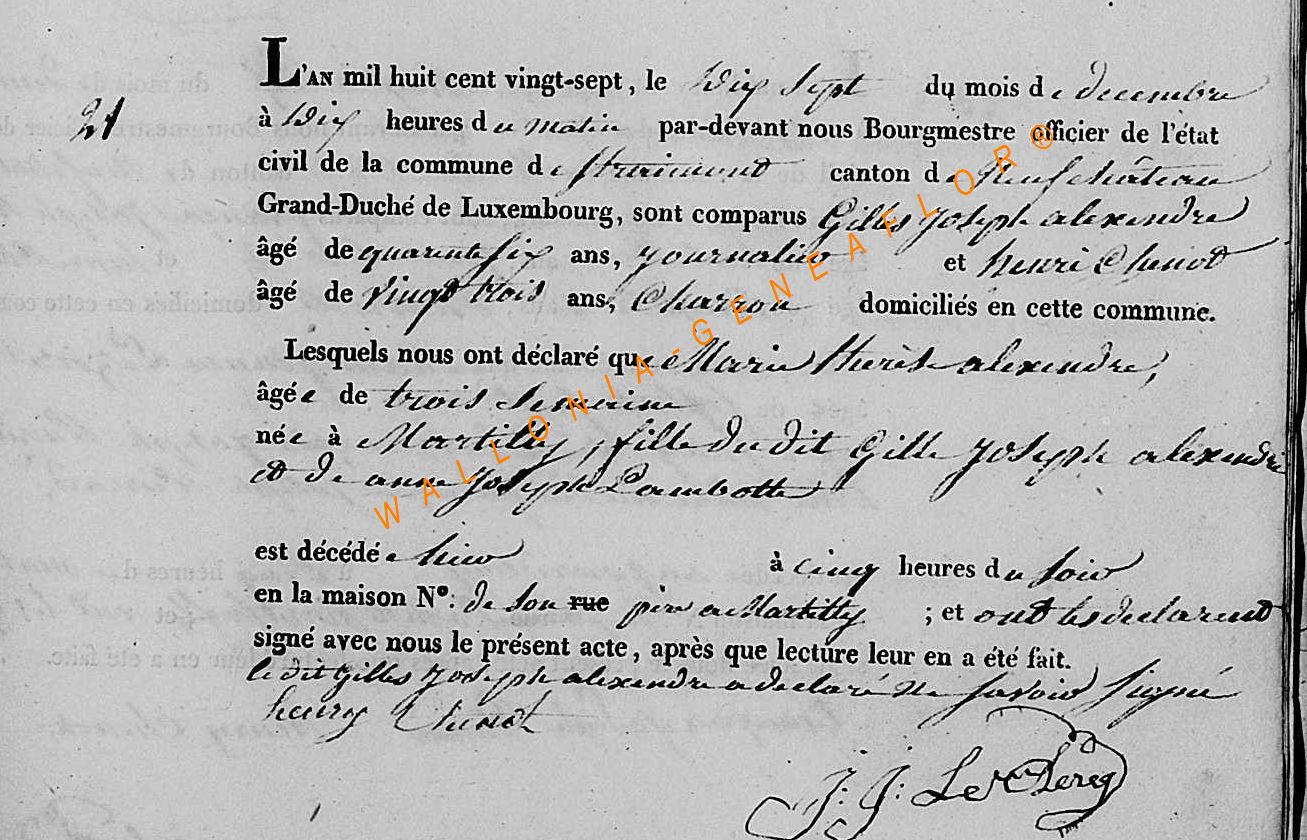 L'AN mil huit cent vingt-sept, le Dix Sept du mois de decembre
21
à Dix heures du matin par-devant nous Bourgmestre officier de l'état
civil de la commune de Straimont canton de Neufchâteau
Grand-Duché de Luxembourg, sont comparus Gilles Joseph alexendre
âgé de quarente six ans, journalier et henri Chenot
âgé de vingt trois ans, Charron domiciliés en cette commune.
Lesquels nous ont déclaré que Marie therese alexendre,
âgée de trois semeine
née à Martilly, fille du dit Gille Joseph alexendre
et de anne Joseph Lambotte
est décédée hier à cinq heures du soir
en la maison N°: de son rue père a Martilly ; et ont les declarent
signé avec nous le présent acte, après que lecture leur en a été fait.
le dit Gilles Joseph alexendre a declaré ne savoir signé
henry Chenot
J: J: Le Clercq
WALLONIA-GENEAFLOR®